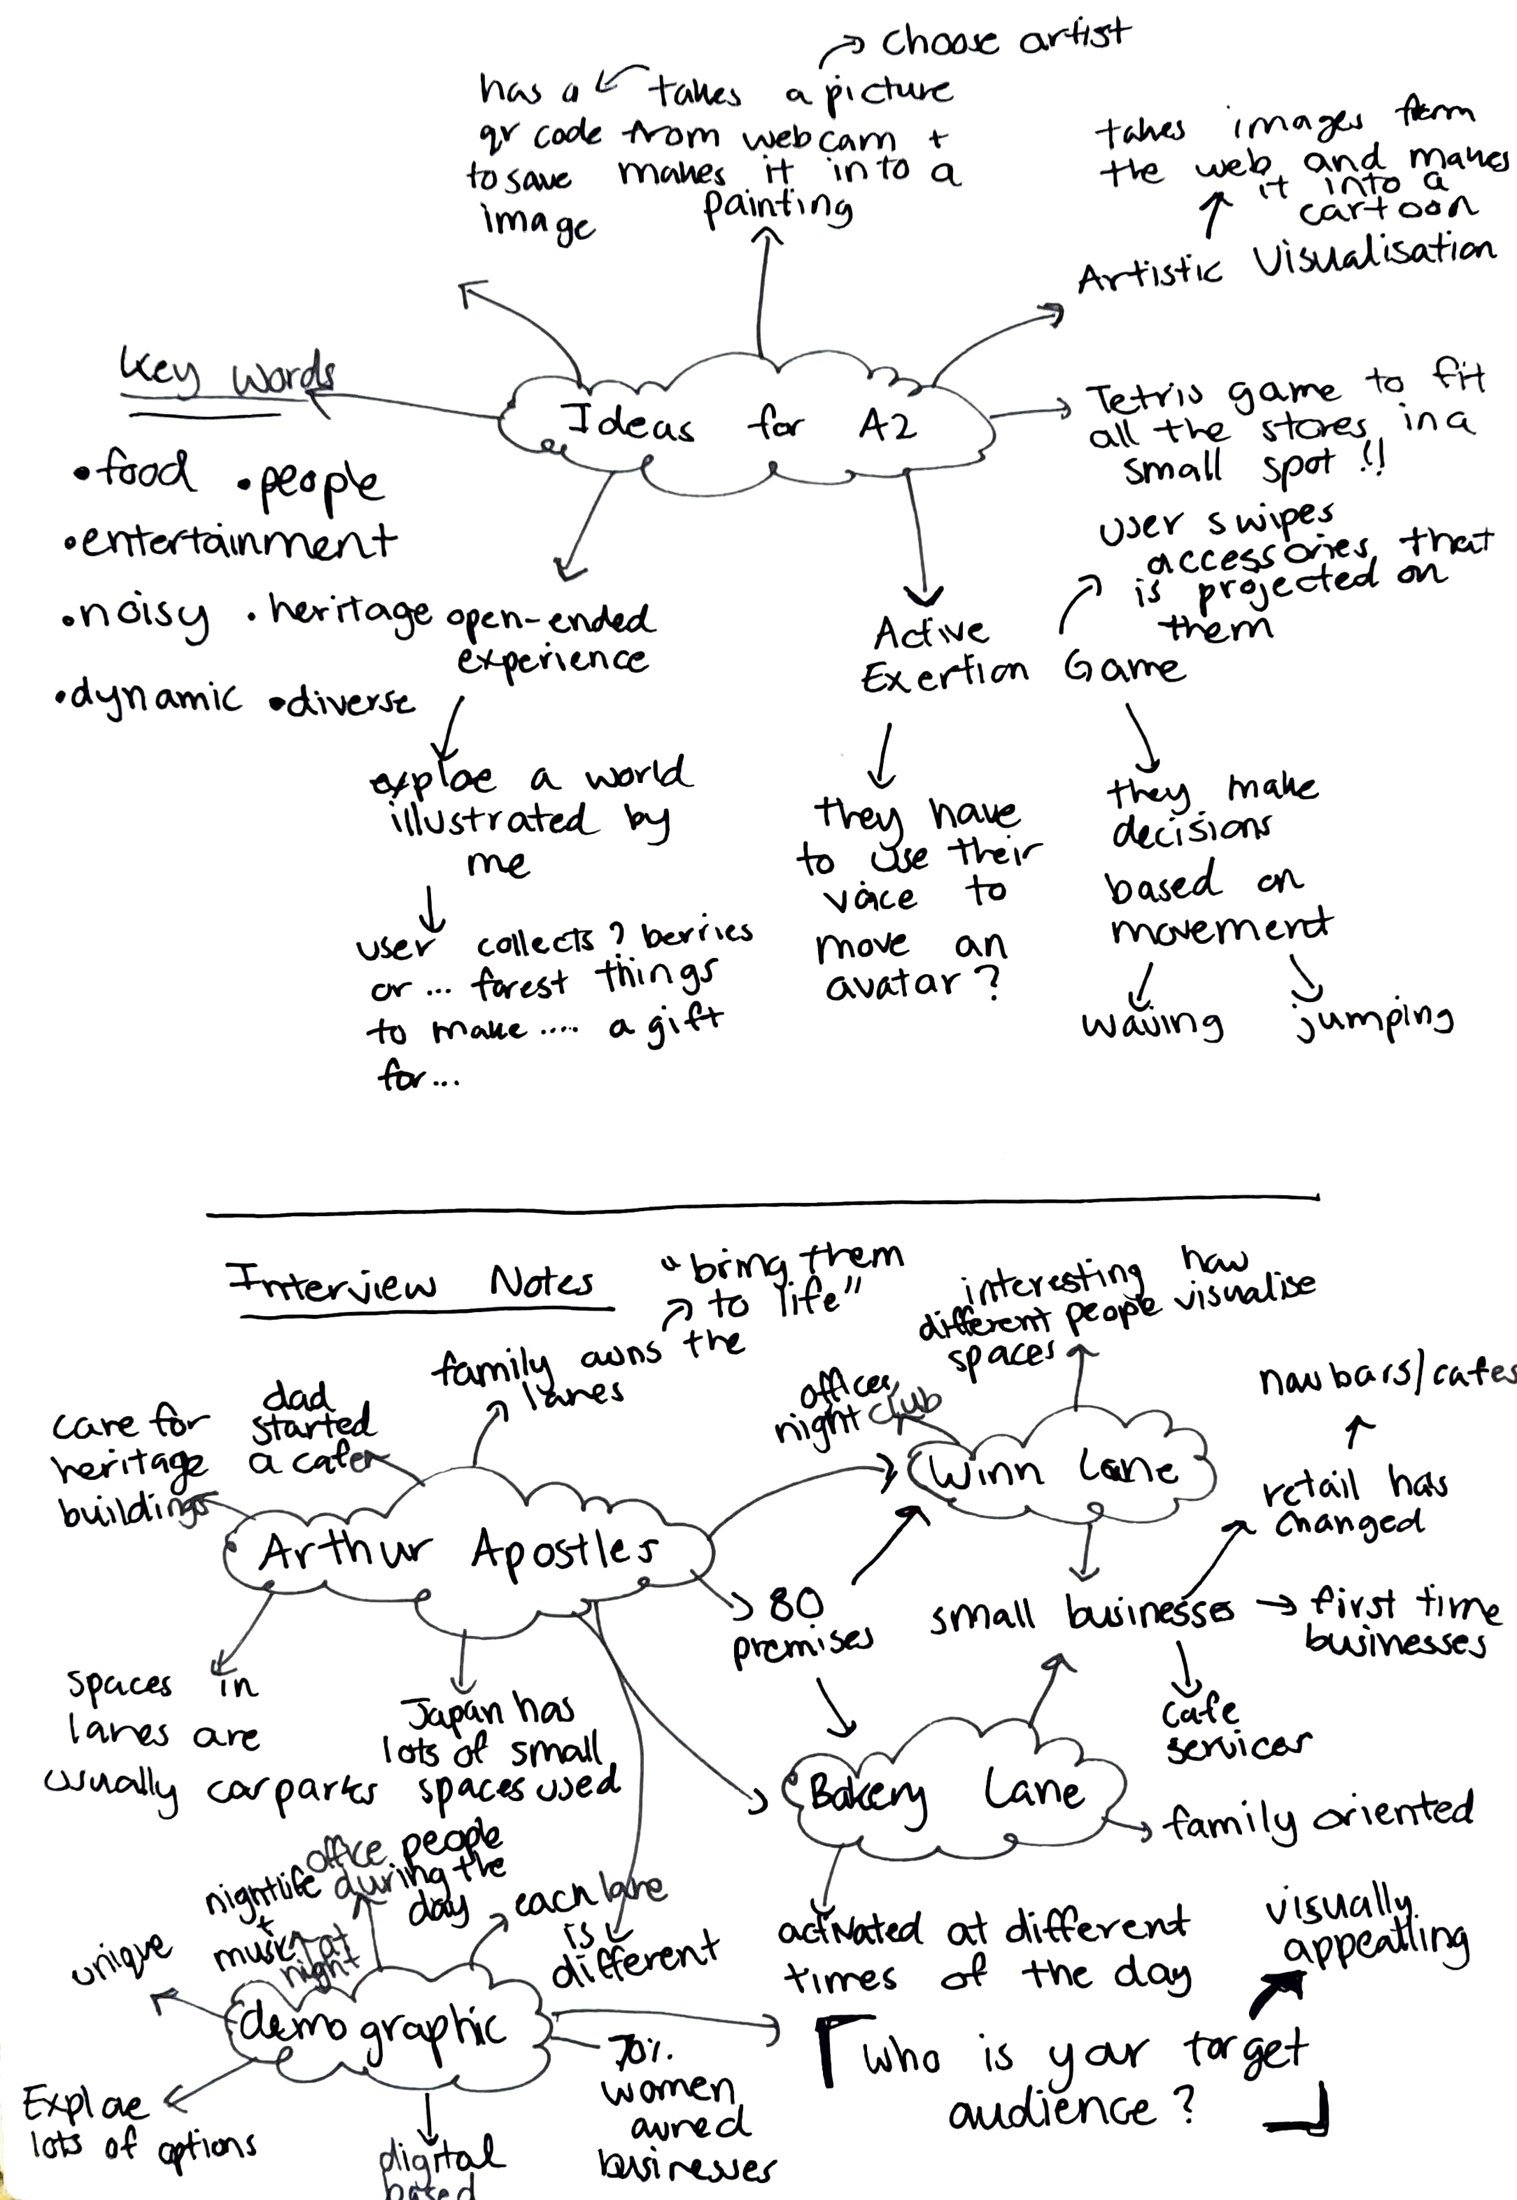 choose artist
has a
qr code
to save
image
takes a picture
from webcam +
makes it into a
painting
takes images from
the web and makes
it into a
cartoon
Artistic Visualisation
Key Words
• food • people
• entertainment
• noisy • heritage
• dynamic • diverse
Ideas for A2
Tetris game to fit
all the stores in a
small spot !!
user swipes
accessories that
is projected on
them
open-ended
experience
explore a world
illustrated by
me
user collects? berries
or ... forest things
to make .... a gift
for...
Active
Exertion Game
they have
to use their
voice to
move an
avatar?
they make
decisions
based on
movement
waving
jumping
Interview Notes
"bring them
to life"
family owns the
lanes
dad
started
a cafe
care for
heritage
buildings
Arthur Apostles
interesting how
different people visualise
spaces
offices,
night club
Winn Lane
now bars/cafes
retail has
changed
80
premises
small businesses
first time
businesses
cafe
services
spaces in
lanes are
usually carparks
Japan has
lots of small
spaces used
Bakery Lane
family oriented
activated at different
times of the day
office people
during the
day
nightlife
+
music at
night
each lane
is
different
unique
demographic
Explore
lots of options
digital
based
70%
women
owned
businesses
who is your target
audience?
visually
appealling